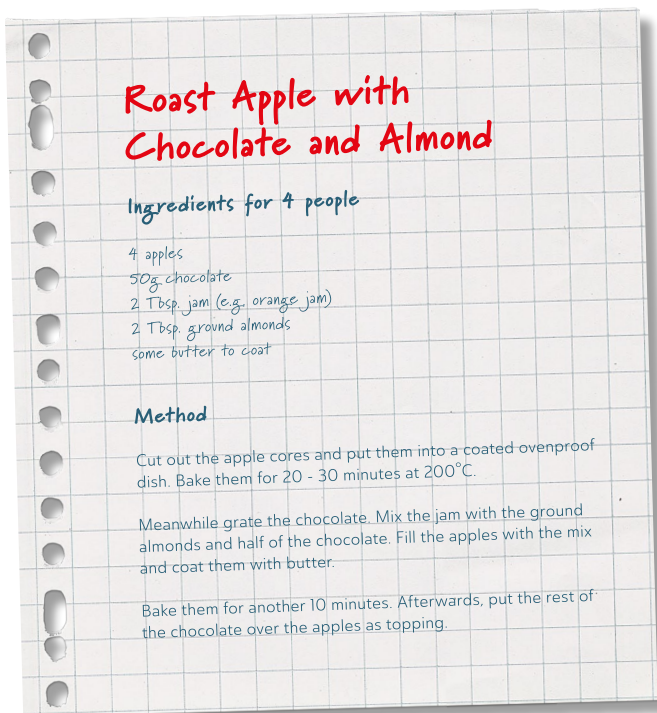 Roast Apple with
Chocolate and Almond
Ingredients for 4 people
4 apples
50g chocolate
2 Tbsp. jam (e.g. orange jam)
2 Tbsp. ground almonds
some butter to coat
Method
Cut out the apple cores and put them into a coated ovenproof
dish. Bake them for 20 - 30 minutes at 200°C.
Meanwhile grate the chocolate. Mix the jam with the ground
almonds and half of the chocolate. Fill the apples with the mix
and coat them with butter.
Bake them for another 10 minutes. Afterwards, put the rest of
the chocolate over the apples as topping.